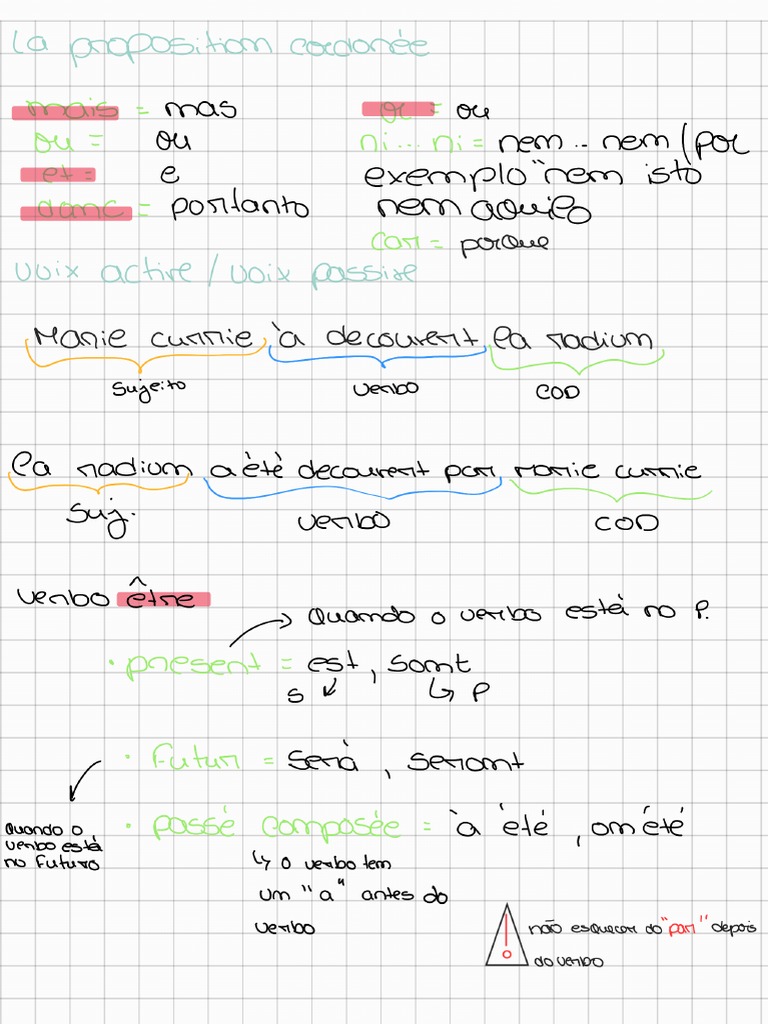 La proposition cordonée
mais = mas
ou = ou
et = e
donc = portanto
or = ou
ni... ni = nem .. nem (por
exemplo "nem isto
nem aquilo
Car = porque
voix active / voix passive
Marie currie à decouvert la radium
Sujeito verbo COD
la radium a èté decouvert par Marie currie
Suj. verbo COD
verbo être
Quando o verbo está no P.
• present = est, sont
S P
• Futur = será, seront
• Passé composée = à été, on été
Quando o
verbo está
no futuro
↳ o verbo tem
um "a" antes do
verbo
não esquecer do "par" depois
do verbo